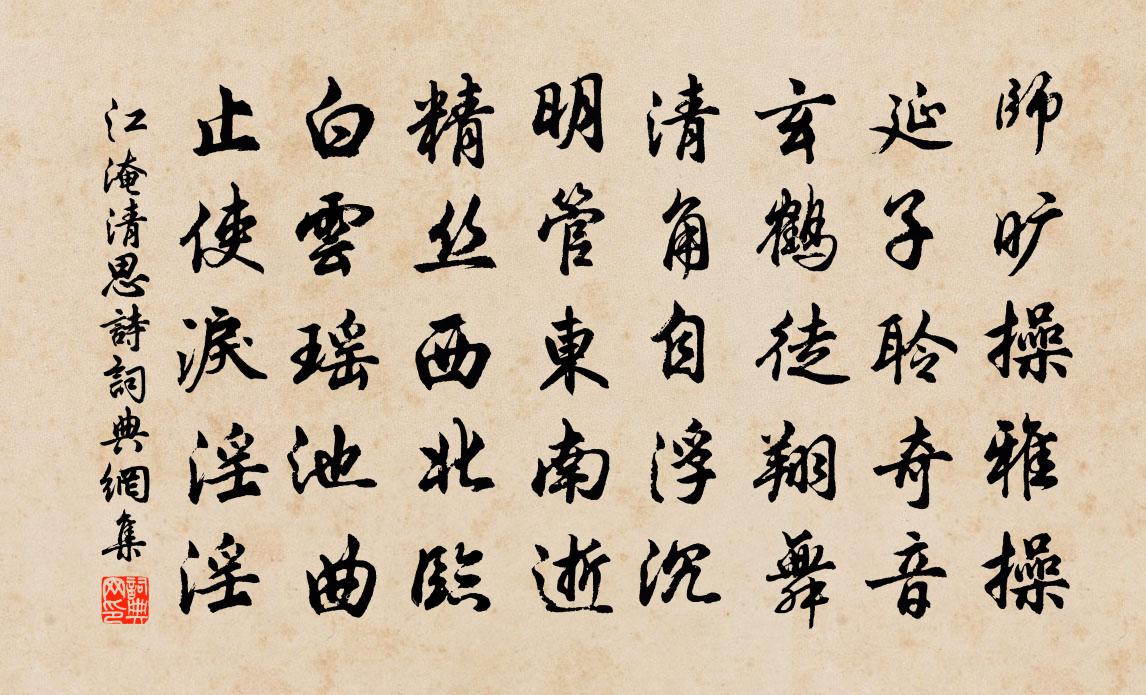 師旷操雅操
延子聆奇音
玄鶴徒翔舞
清角自浮沉
明管東南逝
精丝西北臨
白雲瑶池曲
止使淚淫淫
江淹清思詩詞典網集
詞典网印